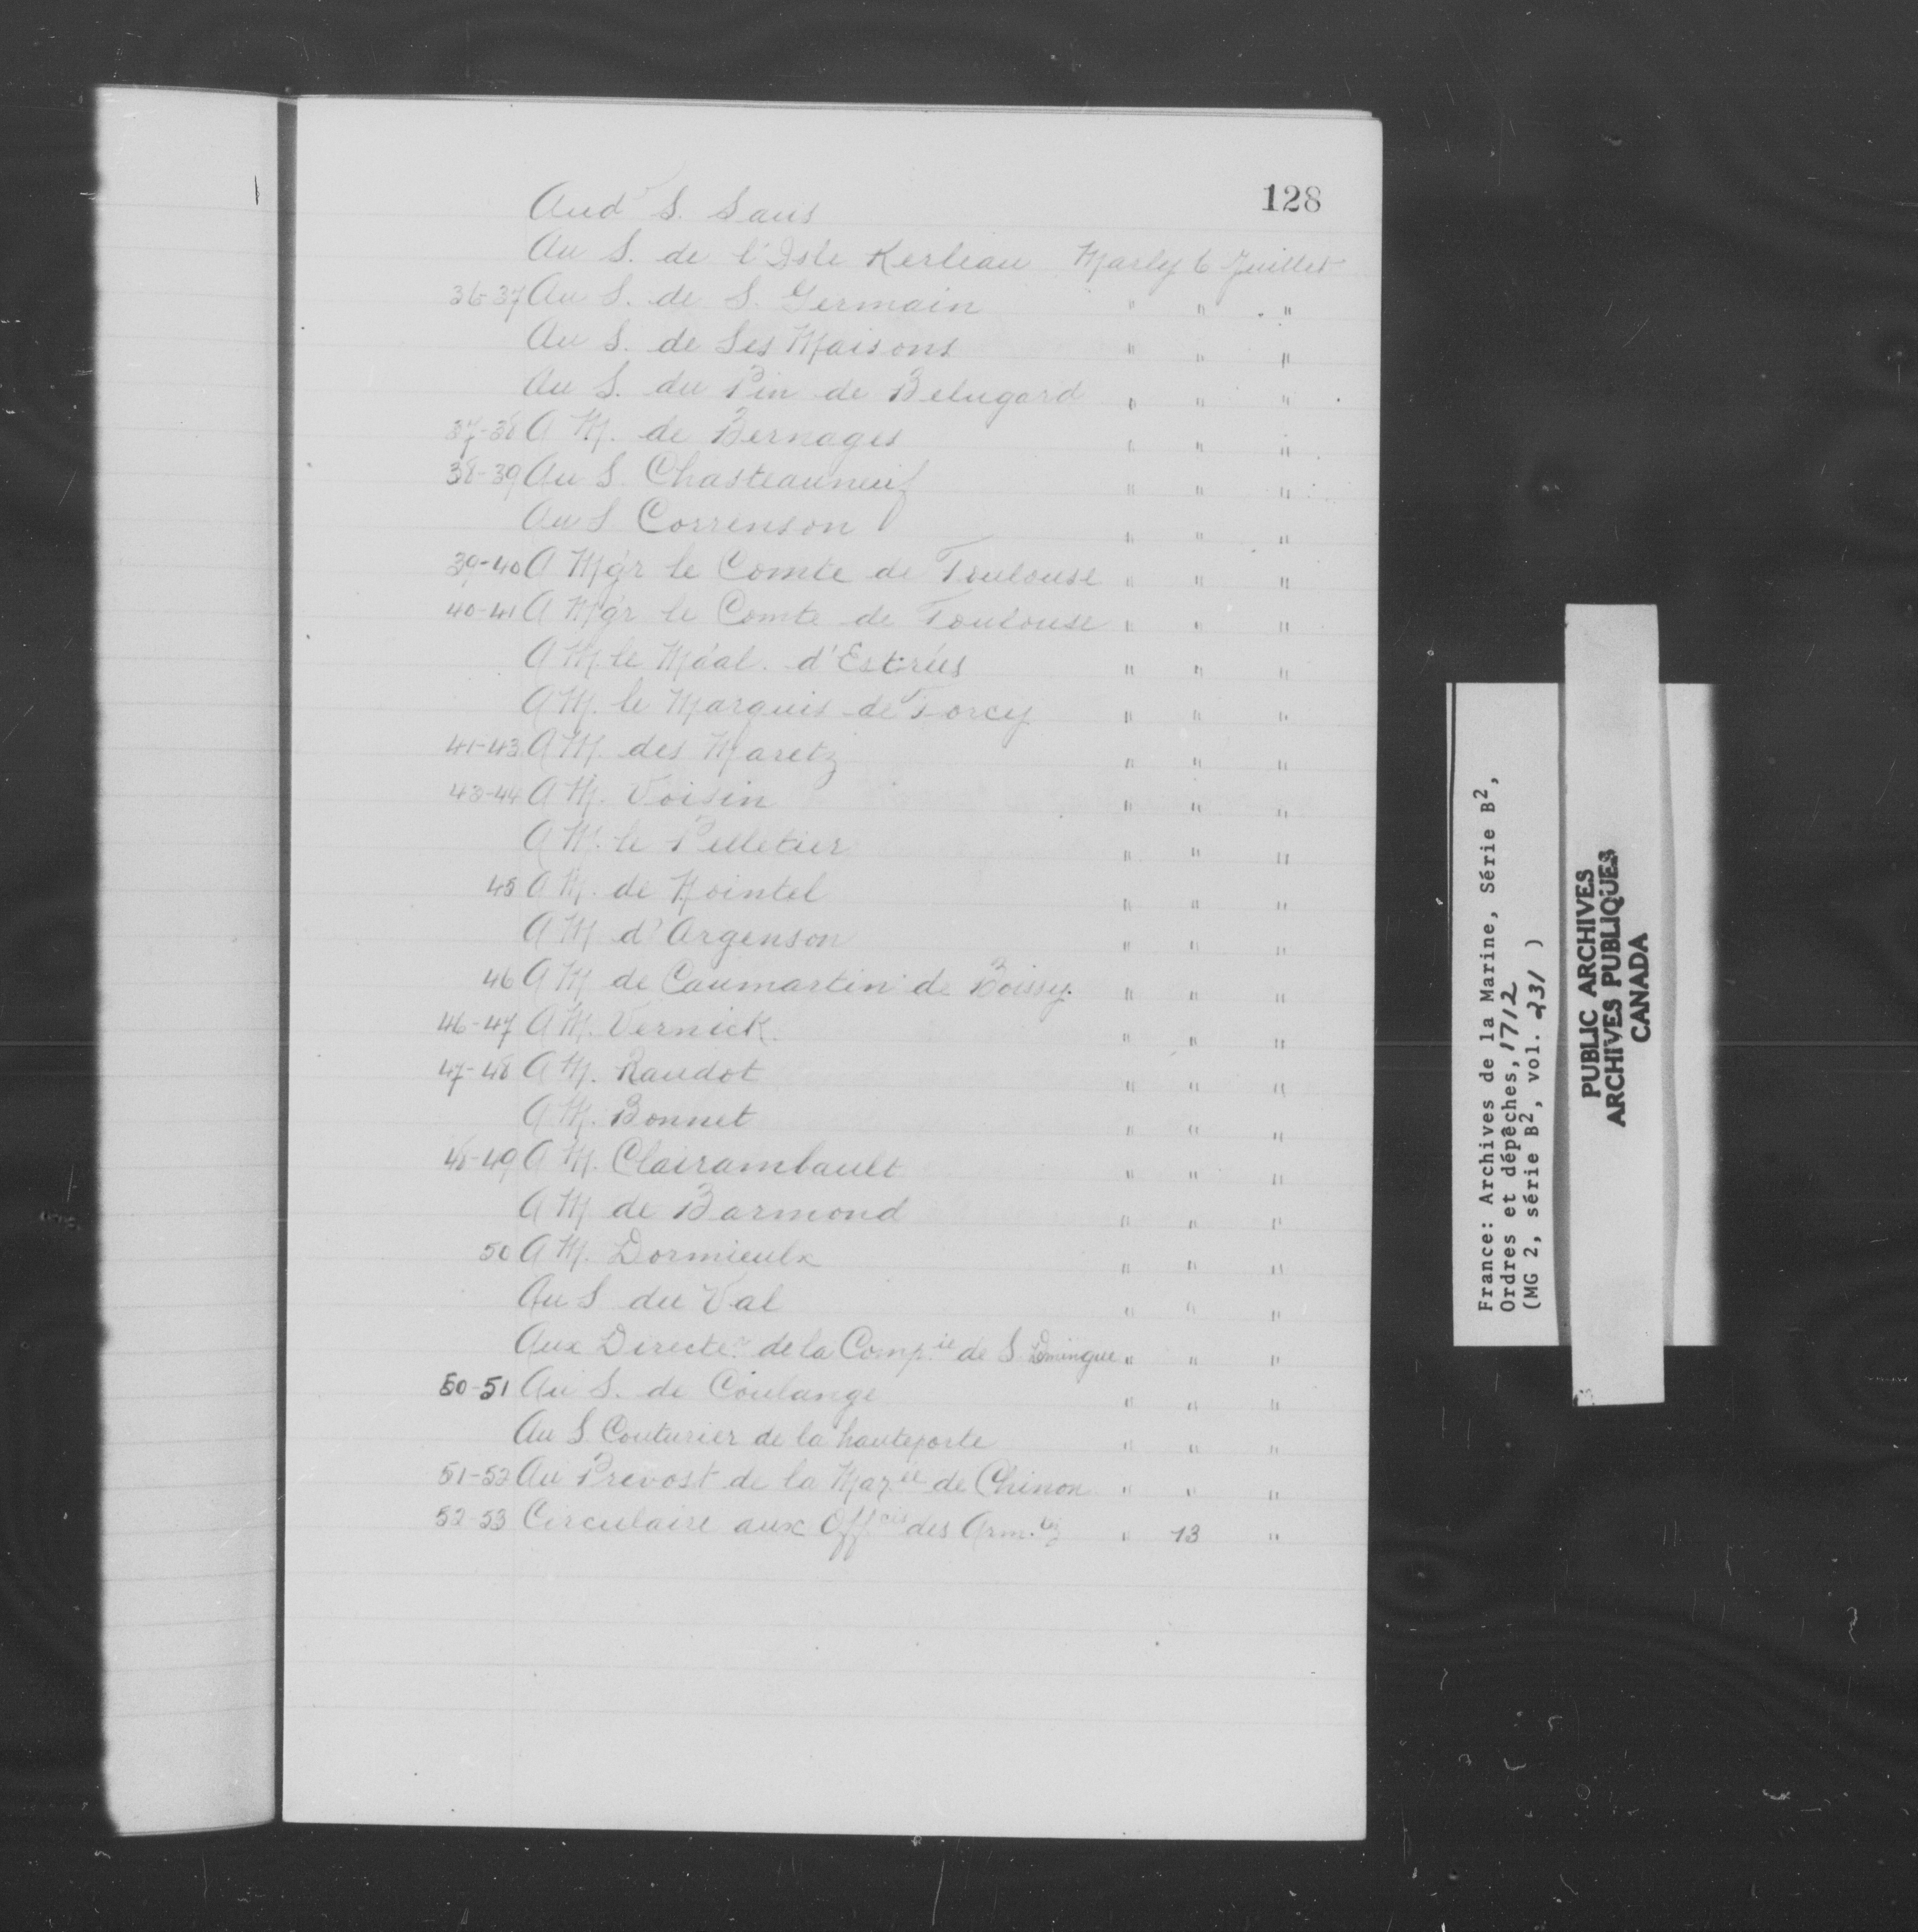 128
Aud S. Saus
Au S. de l'Isle Kerleau Marly 6 Juillet
36-37 Au S. de S. Germain " " "
Au S. de Ses Maisons " " "
Au S. du Pin de Belugard " " "
37-38 A M. de Bernages " " "
38-39 Au S. Chasteauneuf " " "
Au S Correnson " " "
39-40 A Mgr le Comte de Toulouse " " "
40-41 A Mgr le Comte de Toulouse " " "
A M. le Máal. d'Estrées " " "
A M. le Marquis de Torcy " " "
41-43 A M. des Maretz " " "
43-44 A M. Voisin " " "
A M. le Pelletier " " "
45 A M. de Nointel " " "
A M d'Argenson " " "
46 A M de Caumartin de Boissy. " " "
46-47 A M. Vernick. " " "
47-48 A M. Raudot " " "
A M. Bonnet " " "
48-49 A M. Clairambault " " "
A M de Barmond " " "
50 A M. Dormieulx " " "
Au S du Val " " "
Aux Directe.rs de la Comp.ie de S Domingue " " "
50-51 Au S. de Coulange " " "
Au S Couturier de la hauteporte " " "
51-52 Au Prevost de la Mar.ée de Chinon " " "
52-53 Circulaire aux Off.ers des Arm.tz " 13 "
France: Archives de la Marine, Série B2,
Ordres et dépêches, 1712
(MG 2, série B2, vol. 231 )
PUBLIC ARCHIVES
ARCHIVES PUBLIQUES
CANADA